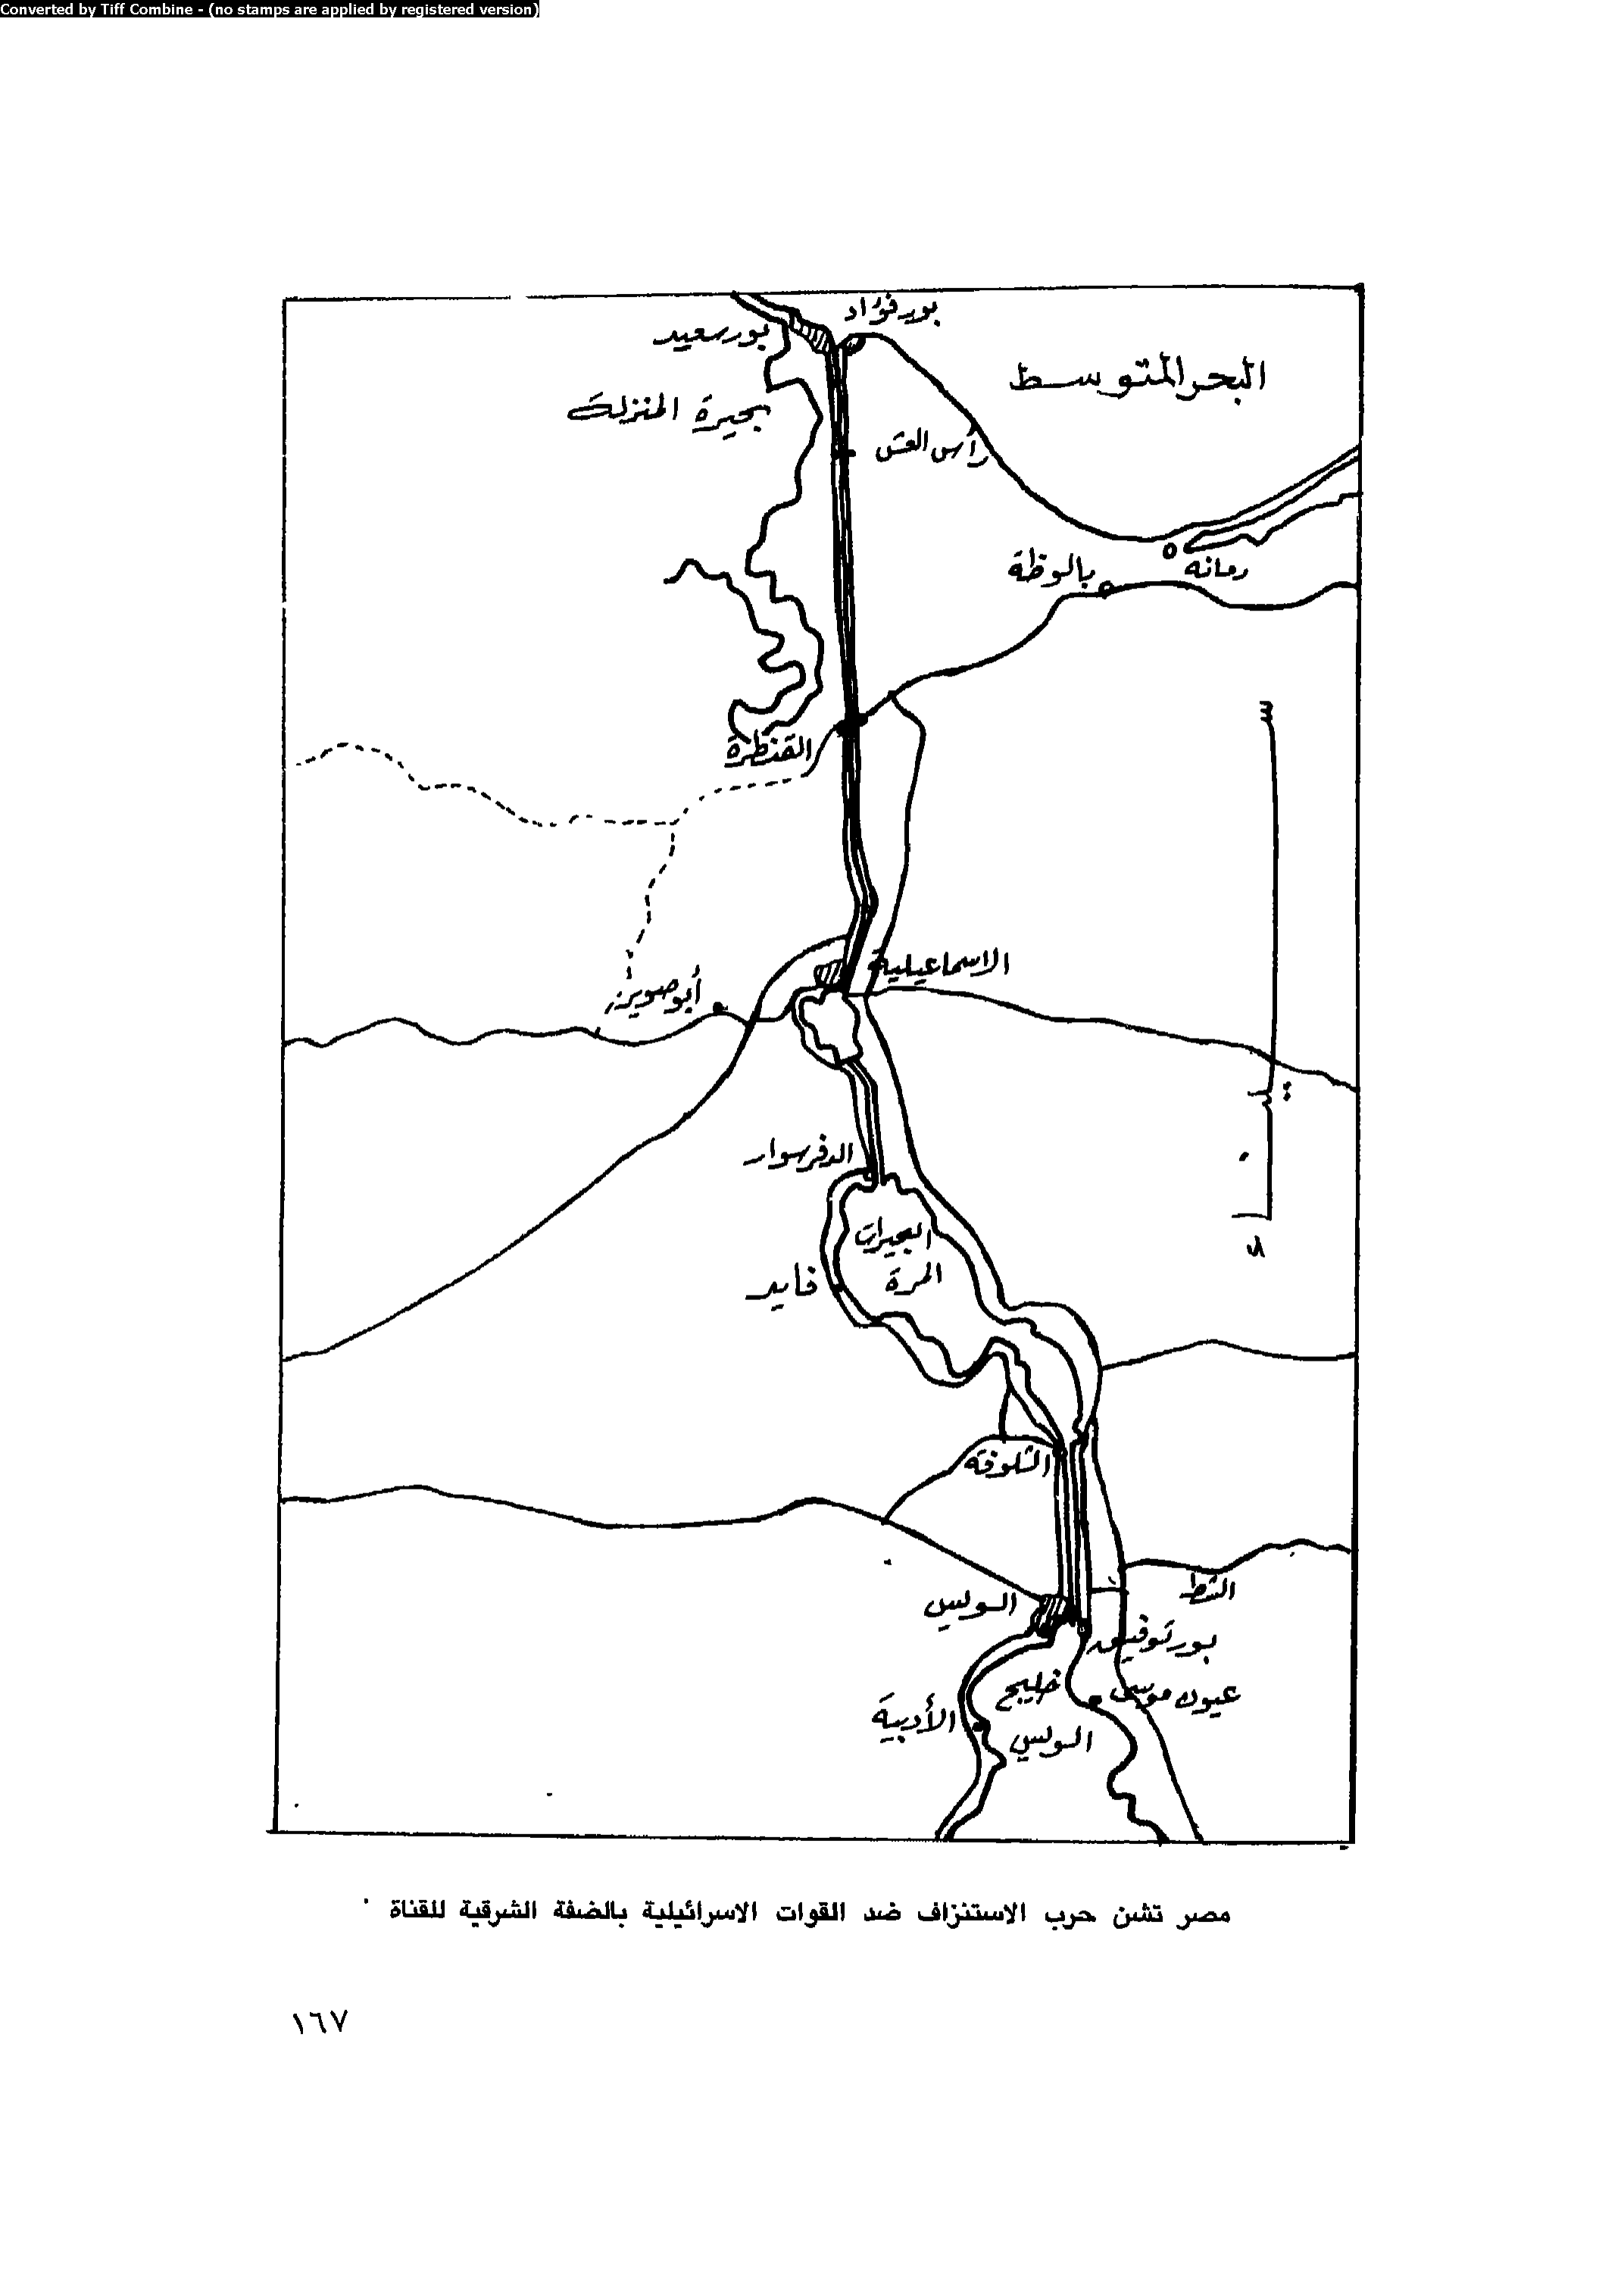 Converted by Tiff Combine - (no stamps are applied by registered version)
بورفؤاد
بورسعيد
البحر المتوسط
بحيرة المنزلة
رأس العش
رمانه
بالوظة
القنطرة
سيناء
الاسماعيلية
أبو صوير
الدفرسوار
البحيرات
المرة
فايد
الشلوفة
الشط
السويس
بورتوفيق
خليج
السويس
عيون موسى
الأدبية
مصر تشن حرب الاستنزاف ضد القوات الاسرائيلية بالضفة الشرقية للقناة
١٦٧